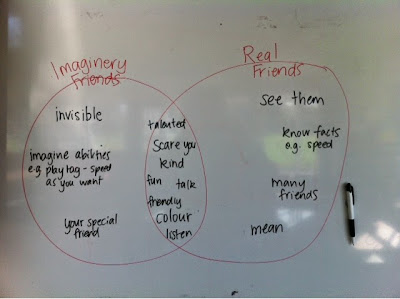 Imaginery
Friends
Real
Friends
invisible
imagine abilities
e.g. play tag - speed
as you want
your special
friend
talented
Scare you
kind
fun talk
friendly
colour
listen
see them
know facts
e.g. speed
many
friends
mean